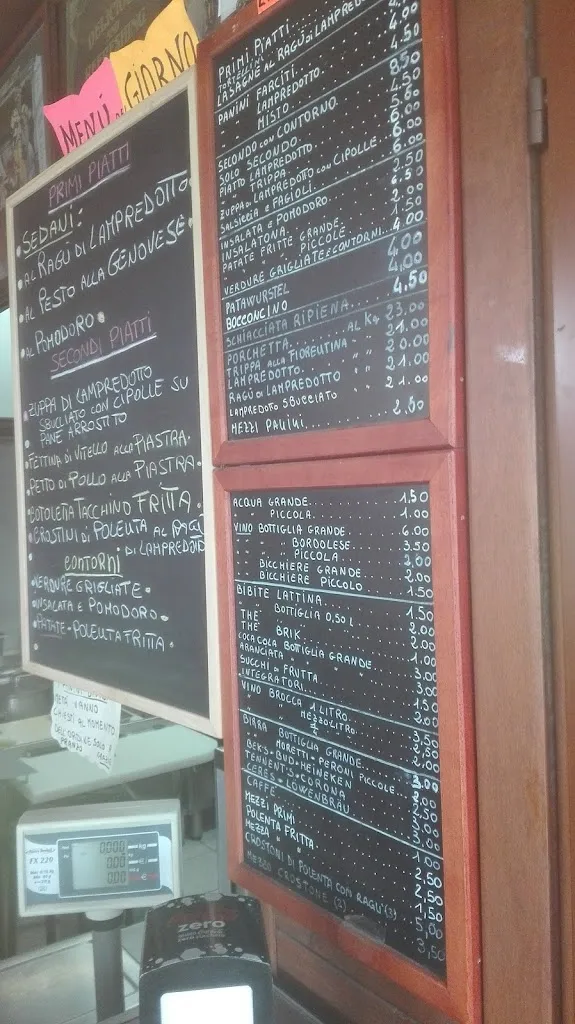 MENÚ DEL GIORNO
PRIMI PIATTI
• SEDANI:
• AL RAGÚ DI LAMPREDOTTO
• AL PESTO ALLA GENOVESE
• AL POMODORO
SECONDI PIATTI
• ZUPPA DI LAMPREDOTTO
SBUCIATO CON CIPOLLE SU
PANE ARROSTITO
• FETTINA DI VITELLO ALLA PIASTRA
• PETTO DI POLLO ALLA PIASTRA
• COTOLETTA TACCHINO FRITTA
• CROSTINI DI POLENTA AL RAGÚ
DI LAMPREDOTTO
CONTORNI
• VERDURE GRIGLIATE
• INSALATA E POMODORO
• PATATE - POLENTA FRITTA
CHIEDI AL MOMENTO
DELL'ORDINE
FX 220
zero
PRIMI PIATTI
LASAGNE AL RAGÚ DI LAMPREDOTTO
PANINI FARCITI
" LAMPREDOTTO
" MISTO
SECONDO CON CONTORNO
SOLO SECONDO
PIATTO LAMPREDOTTO
" TRIPPA
ZUPPA DI LAMPREDOTTO CON CIPOLLE
SALSICCIA E FAGIOLI
INSALATA E POMODORO
INSALATONA
PATATE FRITTE GRANDE
" " PICCOLE
VERDURE GRIGLIATE E CONTORNI 4.00
PATAWURSTEL 4.00
BOCCONCINO 4.00
SCHIACCIATA RIPIENA 4.50
PORCHETTA AL KG 23.00
TRIPPA ALLA FIORENTINA " " 21.00
LAMPREDOTTO " " 20.00
RAGÚ DI LAMPREDOTTO " " 21.00
LAMPREDOTTO SBUCCIATO " " 21.00
MEZZI PANINI 2.80
ACQUA GRANDE 1.50
PICCOLA 1.00
VINO BOTTIGLIA GRANDE 6.00
" " BORDOLESE 3.50
" " PICCOLA 3.00
" BICCHIERE GRANDE 2.00
" BICCHIERE PICCOLO 1.50
BIBITE LATTINA 1.50
" BOTTIGLIA 0,50 L 2.00
THE " 2.00
THE BRIK 1.00
COCA COLA BOTTIGLIA GRANDE 3.00
ARANCIATA " " 3.00
SUCCHI DI FRUTTA 1.50
INTEGRATORI 2.00
VINO BROCCA 1 LITRO
" " MEZZO LITRO 3.50
" " ¼ 2.50
BIRRA BOTTIGLIA GRANDE
" MORETTI - PERONI PICCOLE
BEKS - BUD - HEINEKEN
TENNENT'S - CORONA
CERES - LÖWENBRÄU 3.00
CAFFÉ 1.00
MEZZI PRIMI 2.50
POLENTA FRITTA 2.50
MEZZA " " 1.50
CROSTONI DI POLENTA CON RAGÙ (3) 5,00
MEZZO CROSTONE (2) 3,50